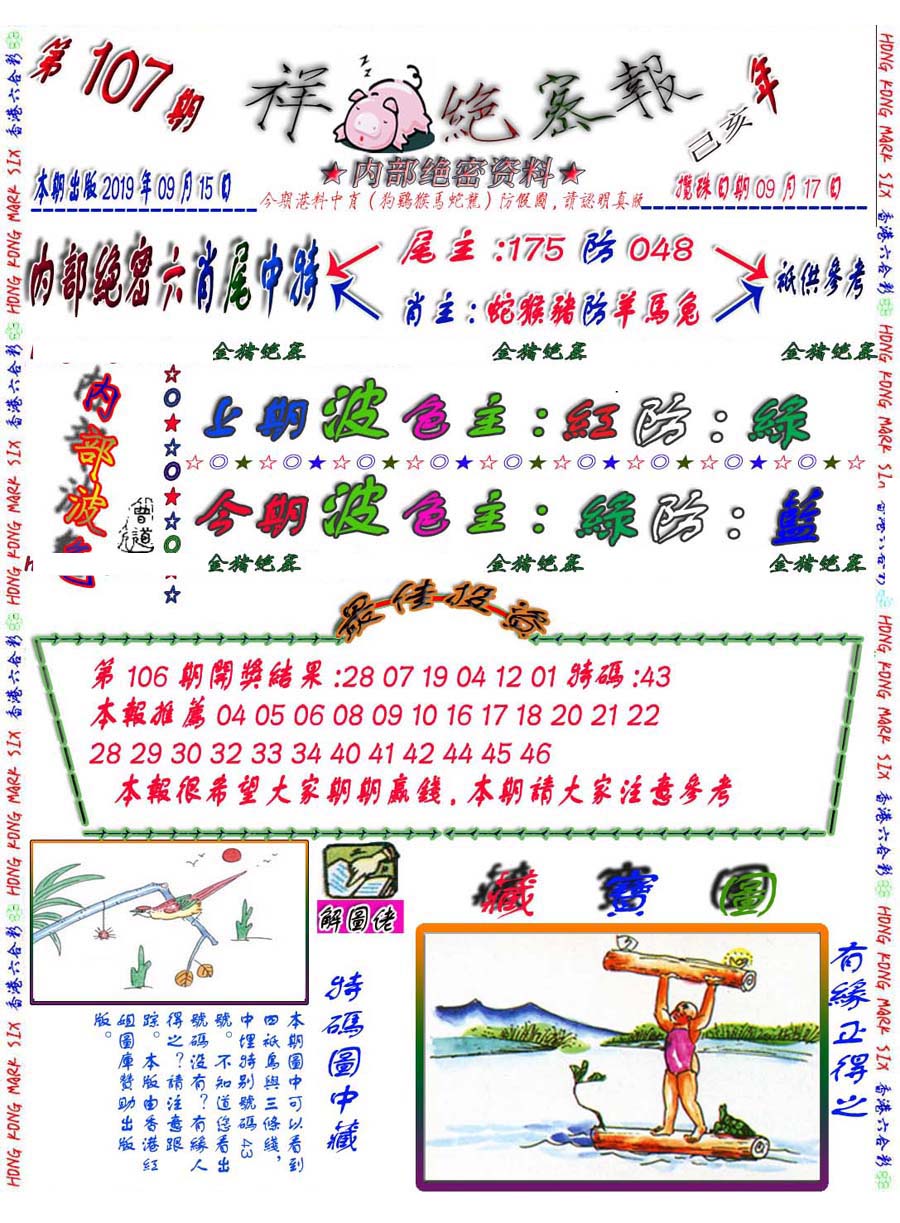 第107期
祥 絕密報
己亥年
★内部绝密资料★
本期出版2019年09月15日
攪珠日期09月17日
今期港料中肖(狗鷄猴馬蛇龍)防假圖,請認明真版
内部絕密六肖尾中特
尾主:175防048
肖主:蛇猴豬防羊馬兔
祇供參考
金猪绝密
金猪绝密
金猪绝密
内部波色
曾道
上期波色主:紅防:綠
☆◎★☆◎★☆◎★☆◎★☆◎★☆◎★☆◎★☆◎★☆
今期波色主:綠防:藍
金猪绝密
金猪绝密
金猪绝密
最佳投註
第106期開獎結果:28 07 19 04 12 01特碼:43
本報推薦04 05 06 08 09 10 16 17 18 20 21 22
28 29 30 32 33 34 40 41 42 44 45 46
本報很希望大家期期贏錢,本期請大家注意參考
解圖佬
特碼圖中藏
本期圖中可以看到
四祇鳥與三條綫,
中埋特别號碼43
號。不知道您看出
號碼没有?有緣人
得之?請注意跟
踪。本版由香港紅
姐圖庫贊助出版
版。
藏寶圖
有緣正得之
香港六合彩 HONG KONG MARK SIX 香港六合彩 HONG KONG MARK SIX 香港六合彩 HONG KONG MARK SIX 香港六合彩 HONG KONG MARK SIX
HONG KONG MARK SIX 香港六合彩 HONG KONG MARK SIX HONG KONG MARK SIX 香港六合彩 HONG KONG MARK SIX 香港六合彩